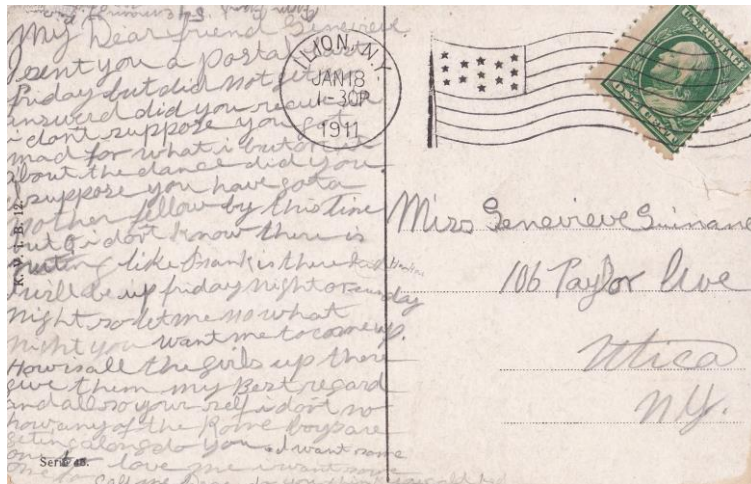 My Dear friend Genevieve
I sent you a postal last
friday but did not get
answered did you recieve it
i don't suppose you got
mad for what i but on it
about the dance did you
i suppose you have gota
nother fellow by this time
but i don't know there is
nuting like frank is there
i will be up friday night or sunday
night, so let me no what
night you want me to come up.
How is all the girls up there
give them my Best regard
and allso your self i dont no
how any of the Rome boys are
geting along do you. I want some
one to love me i want some
one to call me Dear do you think
K. V. i. B. 12.
Serie 48.
ILION, N.Y.
JAN 18
1-30P
1911
U.S. POSTAGE
ONE CENT
Miss Genevieve Guinane
106 Taylor Ave
Utica
N.Y.